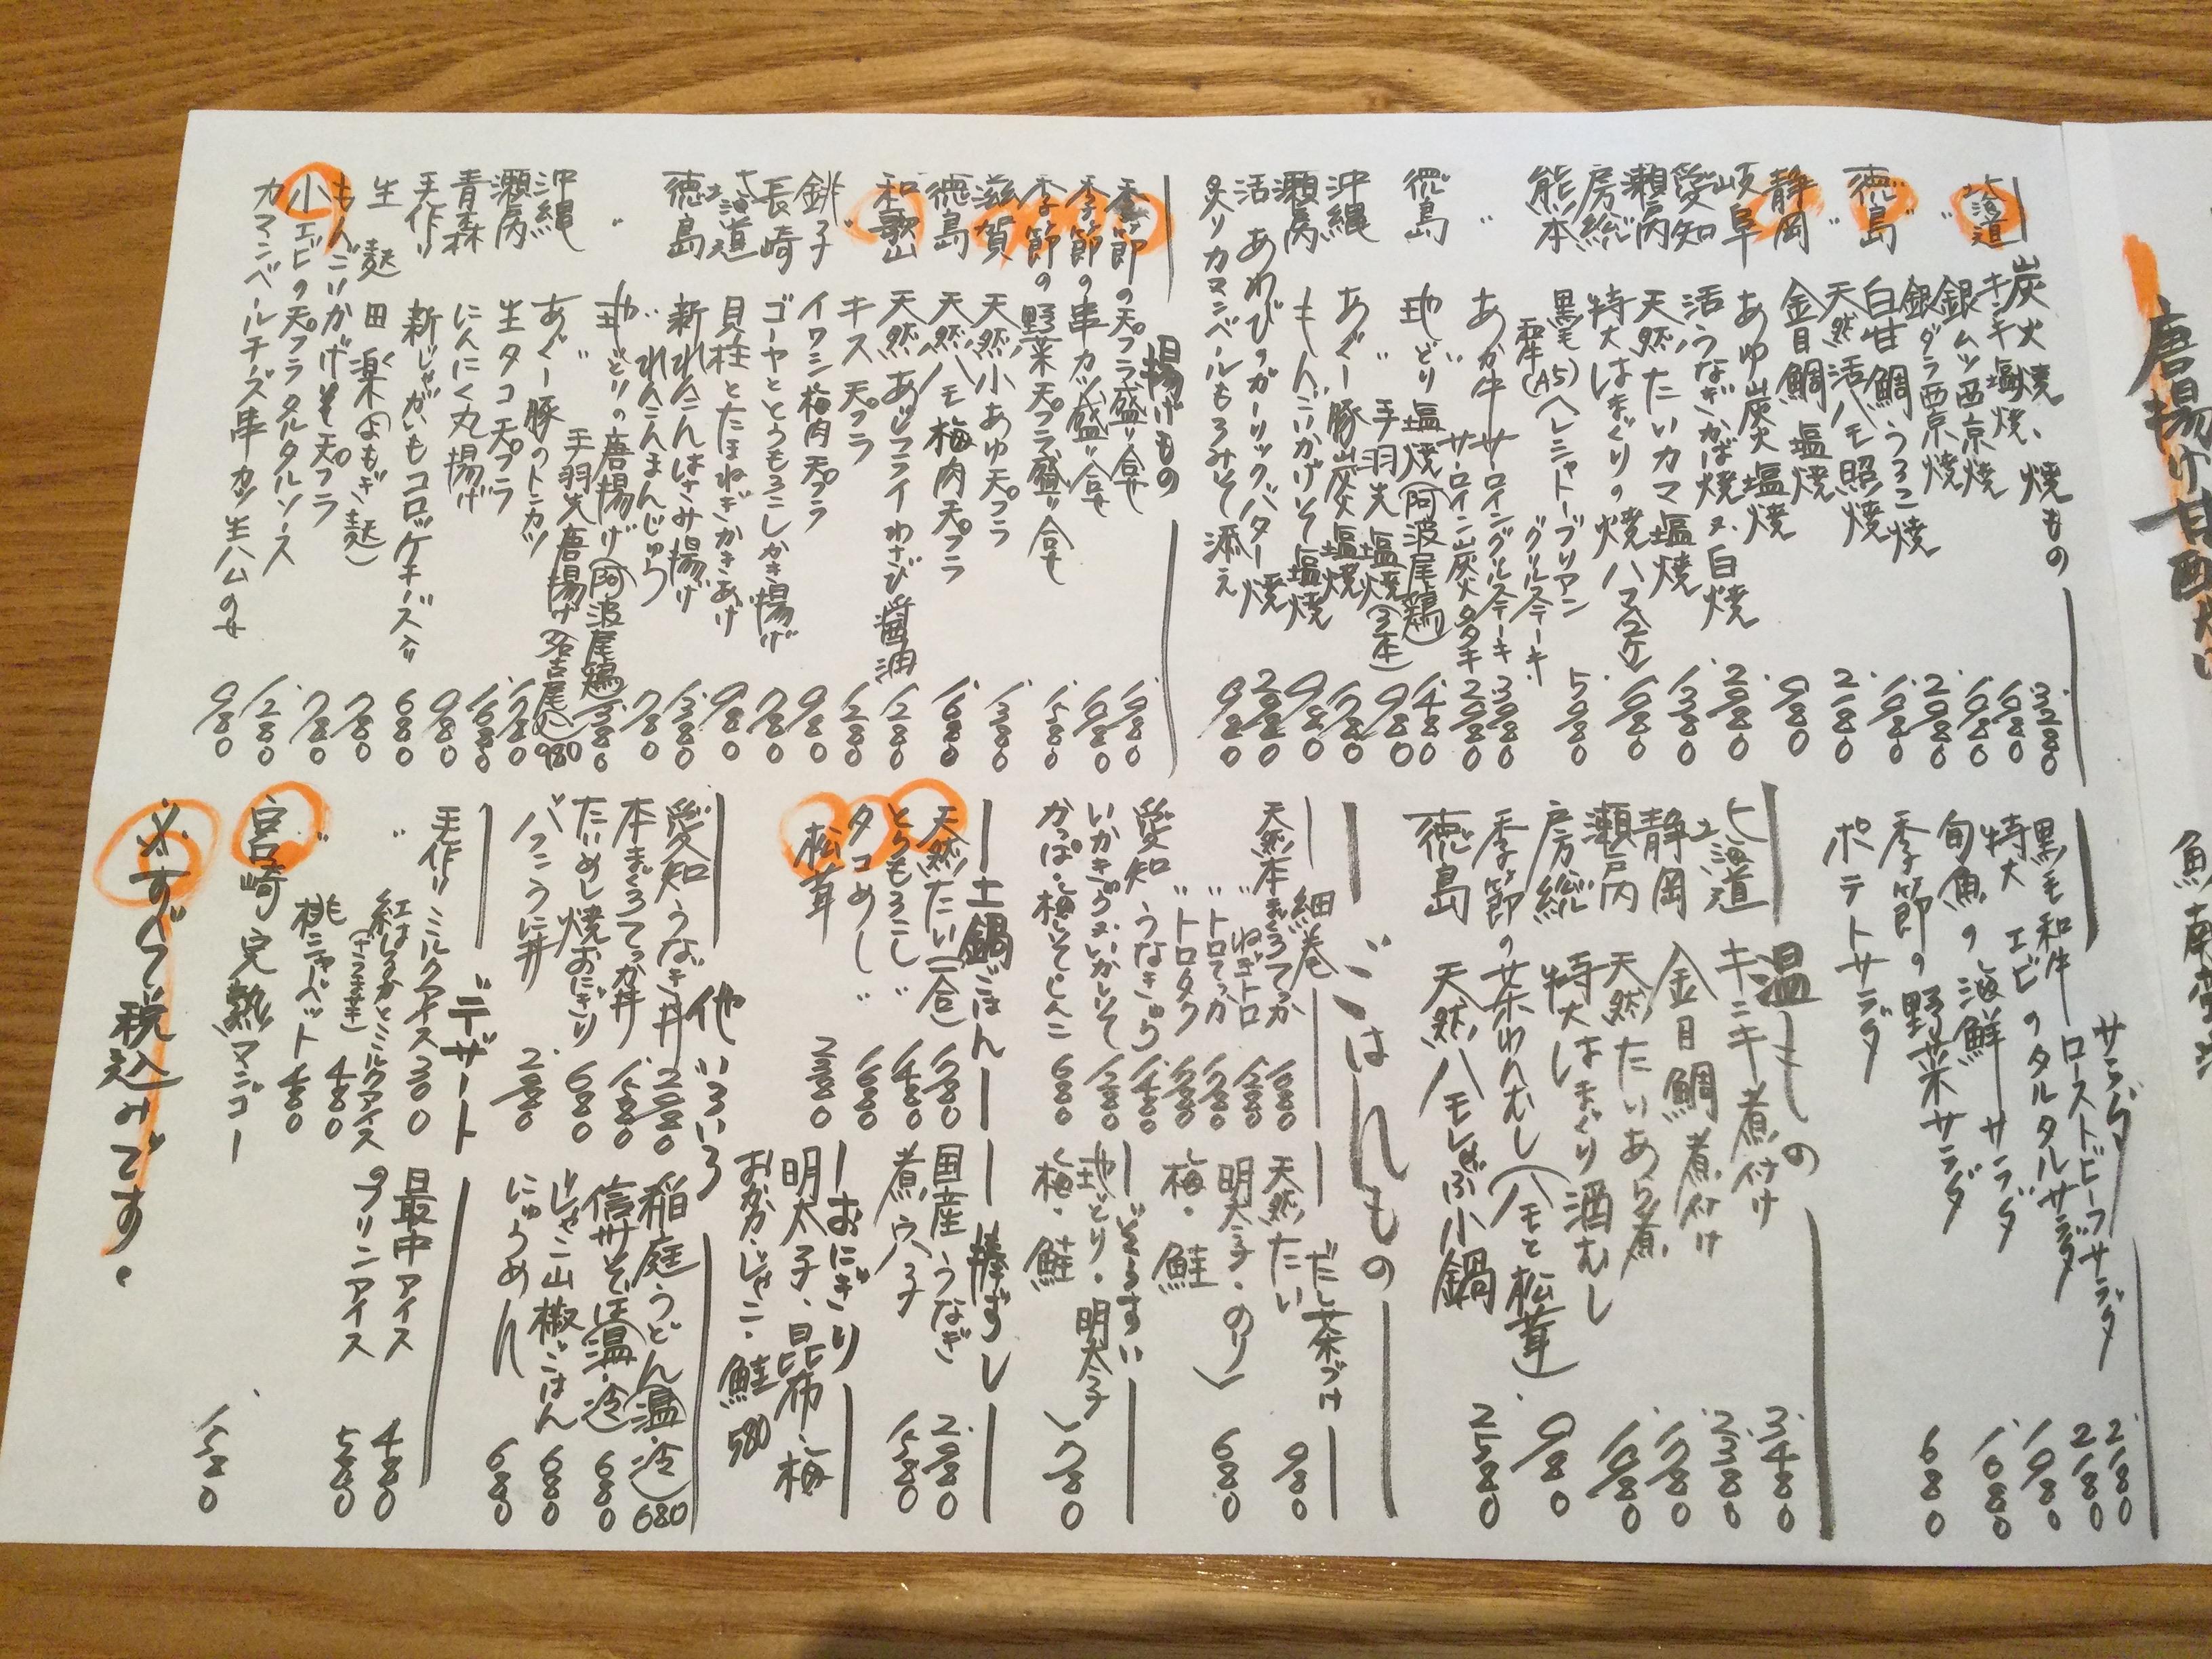 唐揚げ甘酢
炭火焼、焼もの
北海道 キンキ塩焼 3280
〃 銀ムツ西京焼 1680
銀ダラ西京焼 1680
徳島 白甘鯛うろこ焼 2080
〃 天然活ハモ照焼
静岡 金目鯛塩焼 2180
岐阜 あゆ炭火塩焼 980
愛知 活うなぎかば焼又、白焼 2980
瀬戸内 天然たいカマ塩焼 1380
房総 特大はまぐりの焼ハマ(2ケ)
熊本 黒毛(A5)ヘレシャトーブリアン
〃 グリルステーキ 5980
あか牛 サーロイングリルステーキ 3980
サーロイン炭火タタキ 2980
徳島 地どり塩焼(阿波尾鶏) 1480
〃 手羽先塩焼(3本) 980
沖縄 あぐー豚炭火塩焼 1780
瀬戸内 もんごいかげそ塩焼 980
活あわびのガーリックバター焼
炙りカマンベールもろみそ添え
揚げもの
季節の天プラ盛り合せ
季節の串カツ盛り合せ
季節の野菜天プラ盛り合せ 1580
滋賀 天然小あゆ天プラ 1380
徳島 天然ハモ梅肉天プラ 1680
和歌山 天然あじフライわさび醤油 1280
キス天プラ 1280
銚子 イワシ梅肉天プラ 980
長崎 ゴーヤととうもろこしかき揚げ 780
北海道 貝柱とたまねぎかきあげ 980
徳島 新れんこんはさみ揚げ 1380
〃 れんこんまんじゅう 780
〃 地どりの唐揚げ(阿波尾鶏) 1380
〃 手羽先唐揚げ 980
沖縄 あぐー豚のトンカツ 1780
瀬戸内 生タコ天プラ 1680
青森 にんにく丸揚げ 980
手作り 新じゃがいもコロッケチーズ入り 680
生麩田楽(よもぎ麩) 780
もんごいかげそ天プラ 780
小エビの天プラタルタルソース 1280
カマンベールチーズ串カツ生ハムのせ 980
サラダ
黒毛和牛ローストビーフサラダ 2180
特大エビのタルタルサラダ 2180
旬魚の海鮮サラダ
季節の野菜サラダ 1080
ポテトサラダ 680
温もの
北海道 キンキ煮付け 3480
静岡 金目鯛煮付け 2380
瀬戸内 天然たいあら煮 1780
房総 特大はまぐり酒むし
季節の茶わんむし(ハモと松茸) 980
徳島 天然ハモしゃぶ小鍋 2580
ごはんもの
細巻
天然本まぐろてっか 1680
〃 ねぎトロ 1280
〃 トロてっか 1780
〃 トロタク
愛知 うなきゅう 1480
いかきゅう又、いかしそ 1280
かっぱ・梅しそ・しんこ 680
だし茶づけ
天然たい 980
明太子・のり
梅・鮭 680
ぞうすい
地どり・明太子
梅・鮭 780
土鍋ごはん
天然たい(二合) 1780
とうもろこし〃 1480
タコめし〃 1680
松茸 2980
棒ずし
国産うなぎ 2980
煮穴子 1580
おにぎり
明太子・昆布・梅
おかか・じゃこ・鮭 580
他いろいろ
愛知うなぎ丼 2980
本まぐろてっか丼 1580
たいめし焼おにぎり 680
バフンうに丼
稲庭うどん(温・冷) 680
信州そば(温・冷) 680
じゃこ山椒ごはん 680
にゅうめん 680
デザート
手作りミルクアイス 300
〃 紅はるかとミルクアイス(さつま芋) 480
〃 桃シャーベット 480
最中アイス 480
プリンアイス 580
宮崎 完熟マンゴー 1580
必ずすべて税込みです。